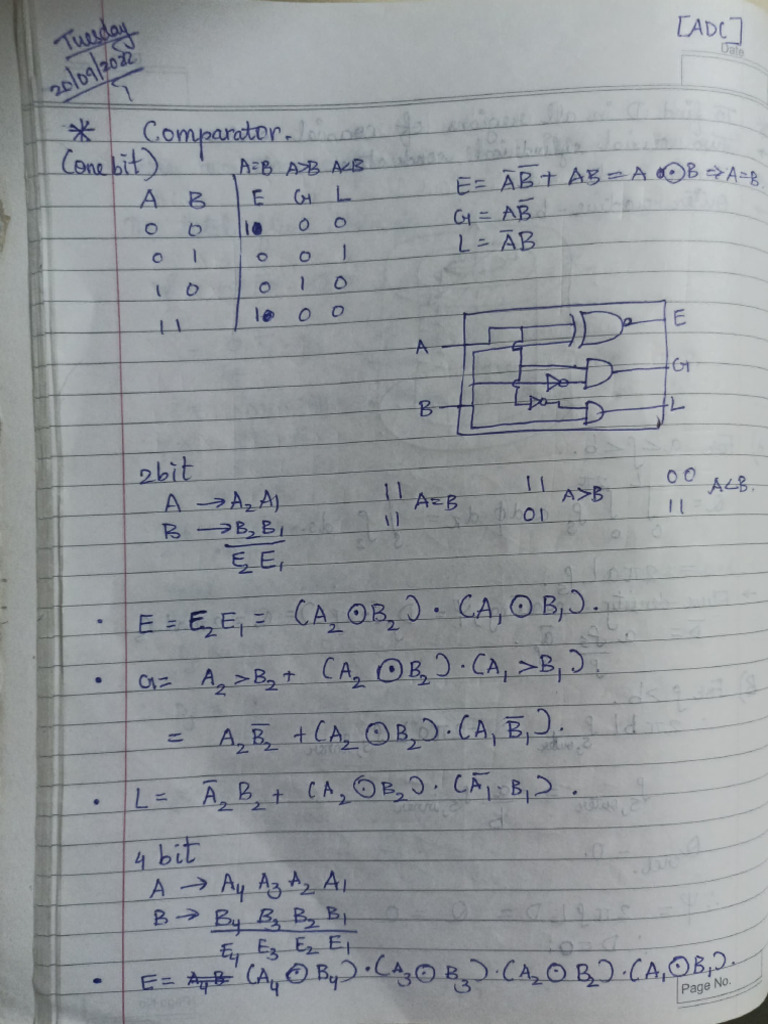 Tuesday
20/09/2022
[ADC]
Date
* Comparator.
(one bit)
A=B A>B A<B
A B E G L
0 0 1 0 0
0 1 0 0 1
1 0 0 1 0
1 1 1 0 0
E = A̅B̅ + AB = A ⊙ B ⇒ A=B
G = AB̅
L = A̅B
A
B
E
G
L
2bit
A → A₂ A₁
B → B₂ B₁
E₂ E₁
11 A=B 11 A>B 00 A<B.
11 01 11
• E = E₂E₁ = (A₂⊙B₂) · (A₁⊙B₁).
• G = A₂>B₂ + (A₂⊙B₂)·(A₁>B₁).
= A₂B̅₂ + (A₂⊙B₂)·(A₁B̅₁).
• L = A̅₂B₂ + (A₂⊙B₂)·(A̅₁·B₁).
4 bit
A → A₄ A₃ A₂ A₁
B → B₄ B₃ B₂ B₁
E₄ E₃ E₂ E₁
• E = A₄B (A₄⊙B₄)·(A₃⊙B₃)·(A₂⊙B₂)·(A₁⊙B₁).
Page No.